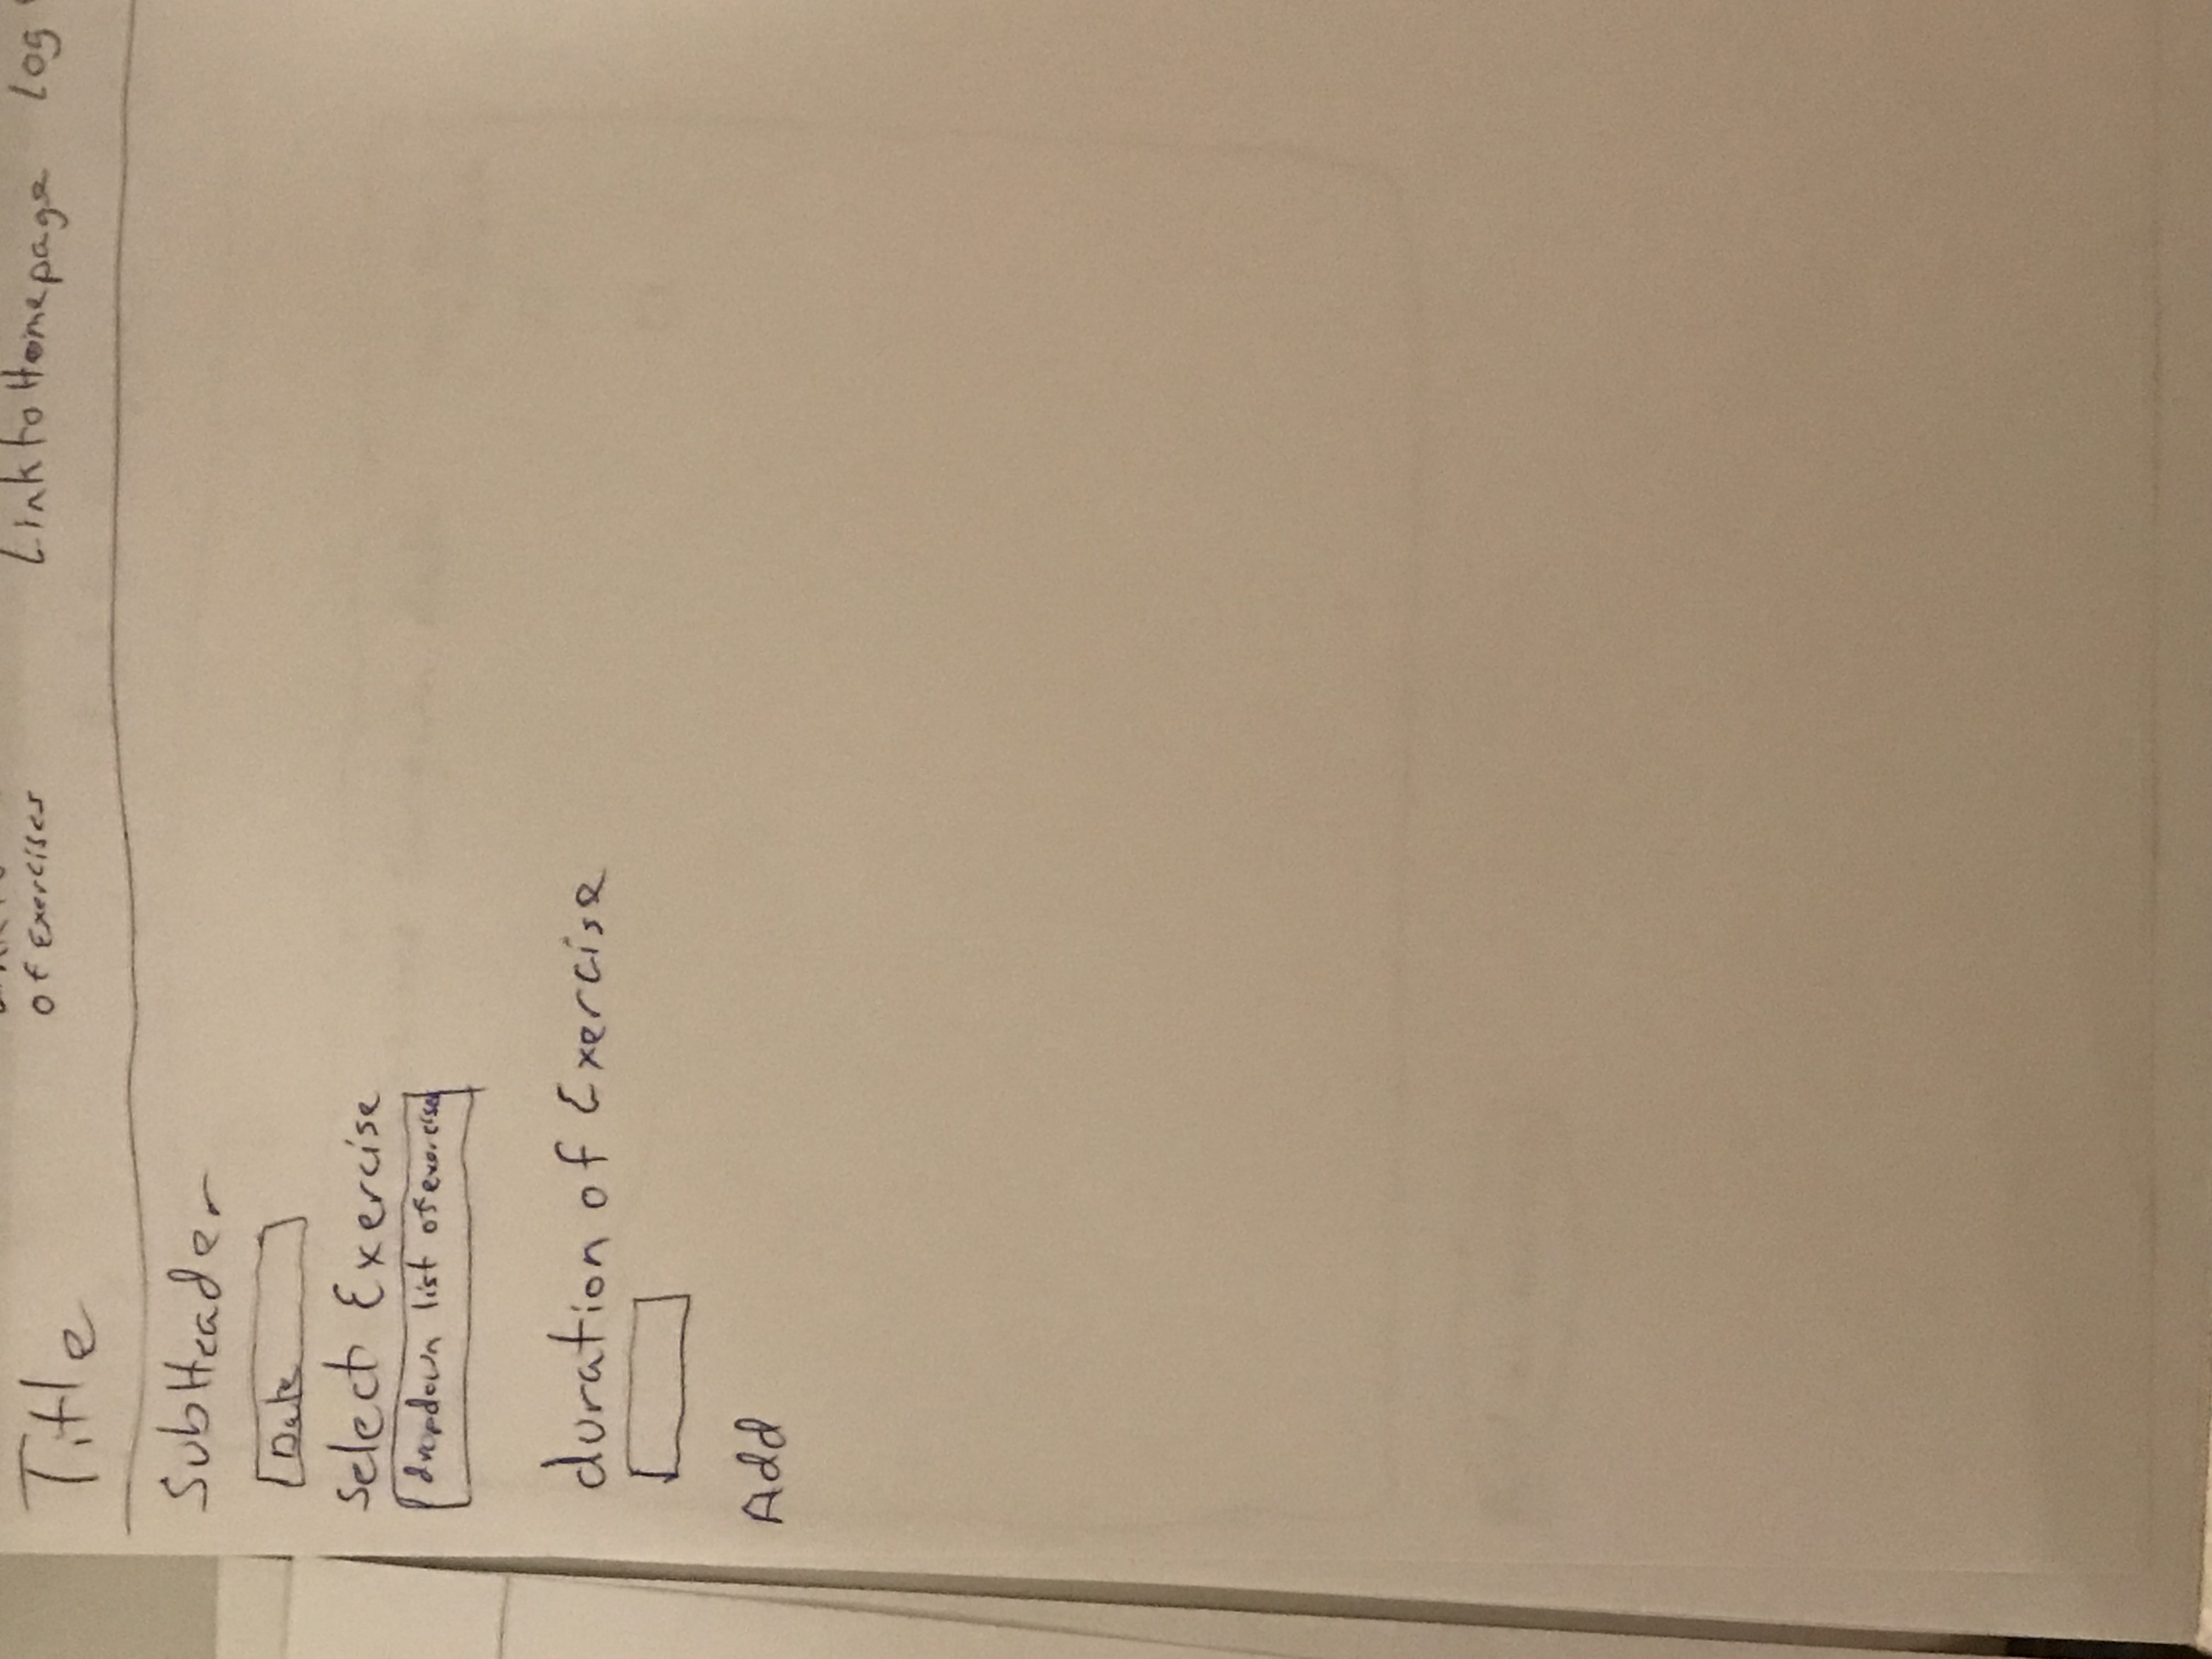 Title
of Exercises
Link to Homepage
log
SubHeader
Date
Select Exercise
dropdown list of exercise
duration of Exercise
Add